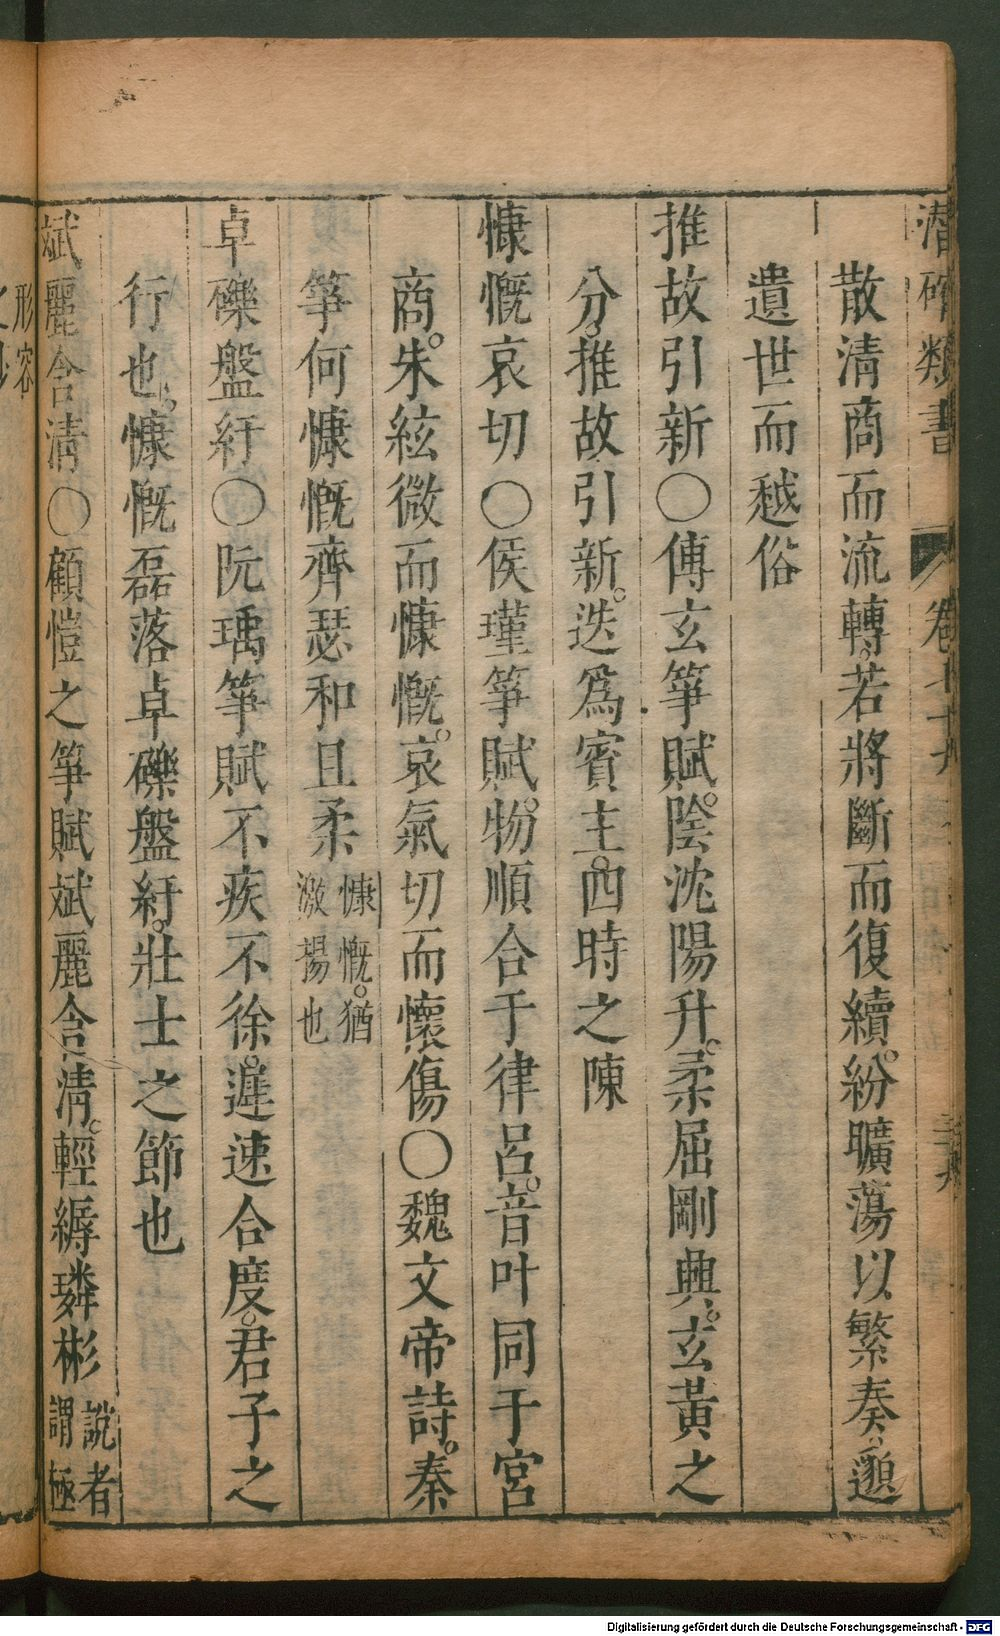 潛確類書 卷七十九
散清商而流轉若將斷而復續紛曠蕩以繁奏邈
遺世而越俗
推故引新〇傅玄箏賦陰沈陽升柔屈剛興玄黃之
分推故引新迭為賓主四時之陳
慷慨哀切〇侯瑾箏賦物順合于律呂音叶同于宮
商朱絃微而慷慨哀氣切而懷傷〇魏文帝詩秦
箏何慷慨齊瑟和且柔慷慨猶激揚也
卓礫盤紆〇阮瑀箏賦不疾不徐遲速合度君子之
行也慷慨磊落卓礫盤紆壯士之節也
斌麗含清〇顧愷之箏賦斌麗含清輕縟璘彬說者謂極
形容
Digitalisierung gefördert durch die Deutsche Forschungsgemeinschaft - DFG